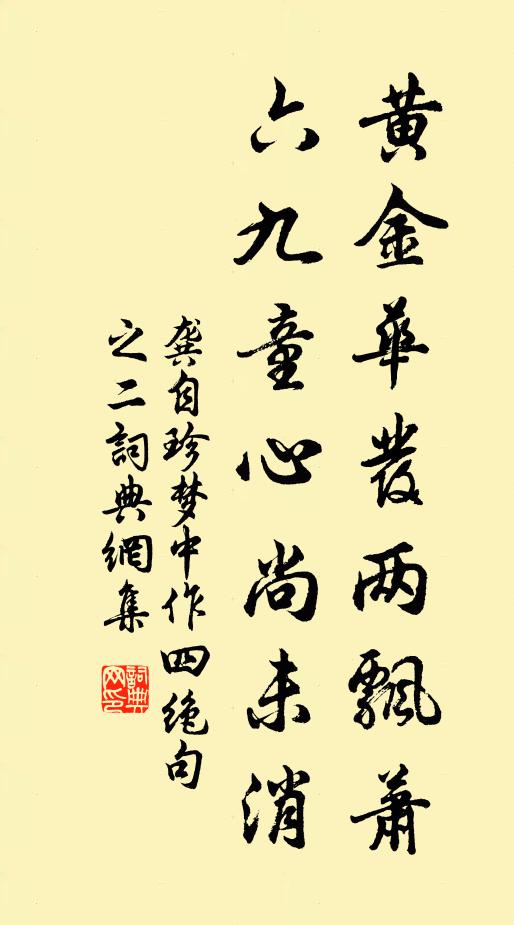 黄金華發两飄蕭
六九童心尚未消
龚自珍梦中作四绝句
之二詞典網集
詞典网印